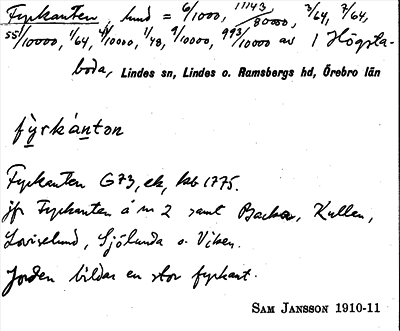 Fyrkanten, lund = 6/1000, 11143/80000, 3/64, 7/64,
551/10000, 1/64, 41/10000, 1/48, 9/10000, 993/10000 av 1 Högsta-
boda, Lindes sn, Lindes o. Ramsbergs hd, Örebro län
fy̱rkánton
Fyrkanten G73, ek, kb 1775.
jfr Fyrkanten å nr 2 samt Backa, Kullen,
Loviselund, Sjölunda o. Viken.
Jorden bildar en stor fyrkant.
SAM JANSSON 1910-11